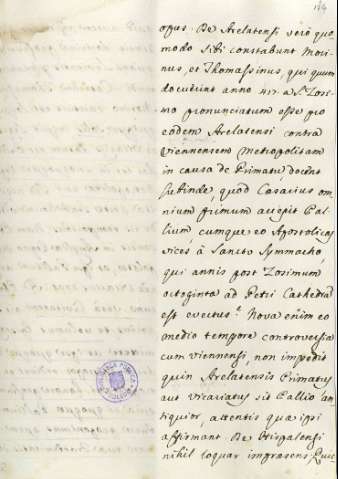 124
opus. De Arelatensi verò quo-
modo sibi constabunt Mori-
nus, et Thomassinus, qui quum
docuerint anno 417 a Sto. Zosi-
mo pronunciatum esse pro
eodem Arelatensi contra
Viennensem Metropolitam
in causa de Primatu, docent
subinde quod Cæsarius om-
nium primum accepit Pal-
lium, cumque eo Apostolicas
vices à Sancto Symmacho,
qui annis post Zosimum
octoginta ad Petri Cathedra
est evectus? Nova enim eo
medio tempore controversia
cum Viennensi, non impedit
quin Arelatensis Primatus
aut vicariatus sit Pallio an-
tiquior, attentis quæ ipsi
affirmant De Hispalensi
nihil loquar impræsens;
BIBLIOTECA PUBLICA
TOLEDO